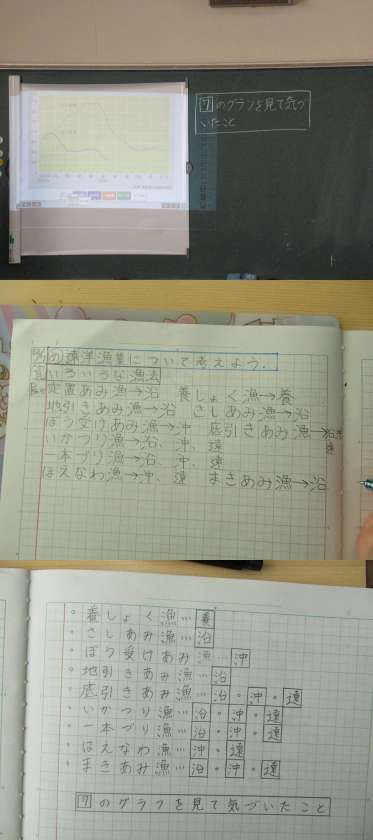 7のグラフを見て気づ
いたこと
遠洋漁業について考えよう。
いろいろな漁法
定置あみ漁→沿 養しょく漁→養
地引きあみ漁→沿 さしあみ漁→沿
ぼう受けあみ漁→沖 底引きあみ漁→沿沖
遠
いかつり漁→沿、沖、遠
一本づり漁→沿、沖、遠
はえなわ漁→沖、遠 まきあみ漁→沿
。養しょく漁…養
・さしあみ漁…沿
・ぼう受けあみ漁…沖
・地引きあみ漁…沿
・底引きあみ漁…沿・沖・遠
・いかつり漁…沿・沖・遠
・一本づり漁…沿・沖・遠
・はえなわ漁…沖・遠
・まきあみ漁…沿・沖・遠
7のグラフを見て気づいたこと